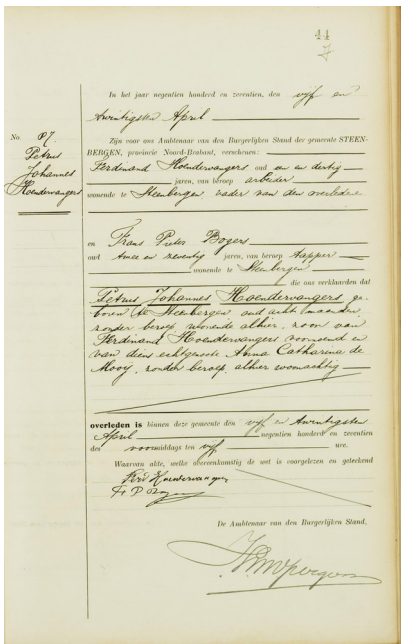 44
In het jaar negentien honderd en zeventien, den vijf en
twintigsten April
No. 87.
Petrus
Johannes
Hoendervangers
Zijn voor ons Ambtenaar van den Burgerlijken Stand der gemeente STEEN-
BERGEN, provincie Noord-Brabant, verschenen:
Ferdinand Hoendervangers oud en dertig
jaren, van beroep arbeider
wonende te Steenbergen vader van den overledene
en Frans Pieter Bogers
oud twee en zeventig jaren, van beroep tapper
wonende te Steenbergen
die ons verklaarden dat
Petrus Johannes Hoendervangers, ge-
boren te Steenbergen, oud acht maanden,
zonder beroep, wonende alhier, zoon van
Ferdinand Hoendervangers voornoemd en
van diens echtgenoote Anna Catharina de
Mooy, zonder beroep, alhier woonachtig
overleden is binnen deze gemeente den vijf en twintigsten
April negentien honderd en zeventien
des voormiddags ten vijf ure.
Waarvan akte, welke overeenkomstig de wet is voorgelezen en geteekend
Ferd Hoendervangers
F P Bogers
De Ambtenaar van den Burgerlijken Stand,